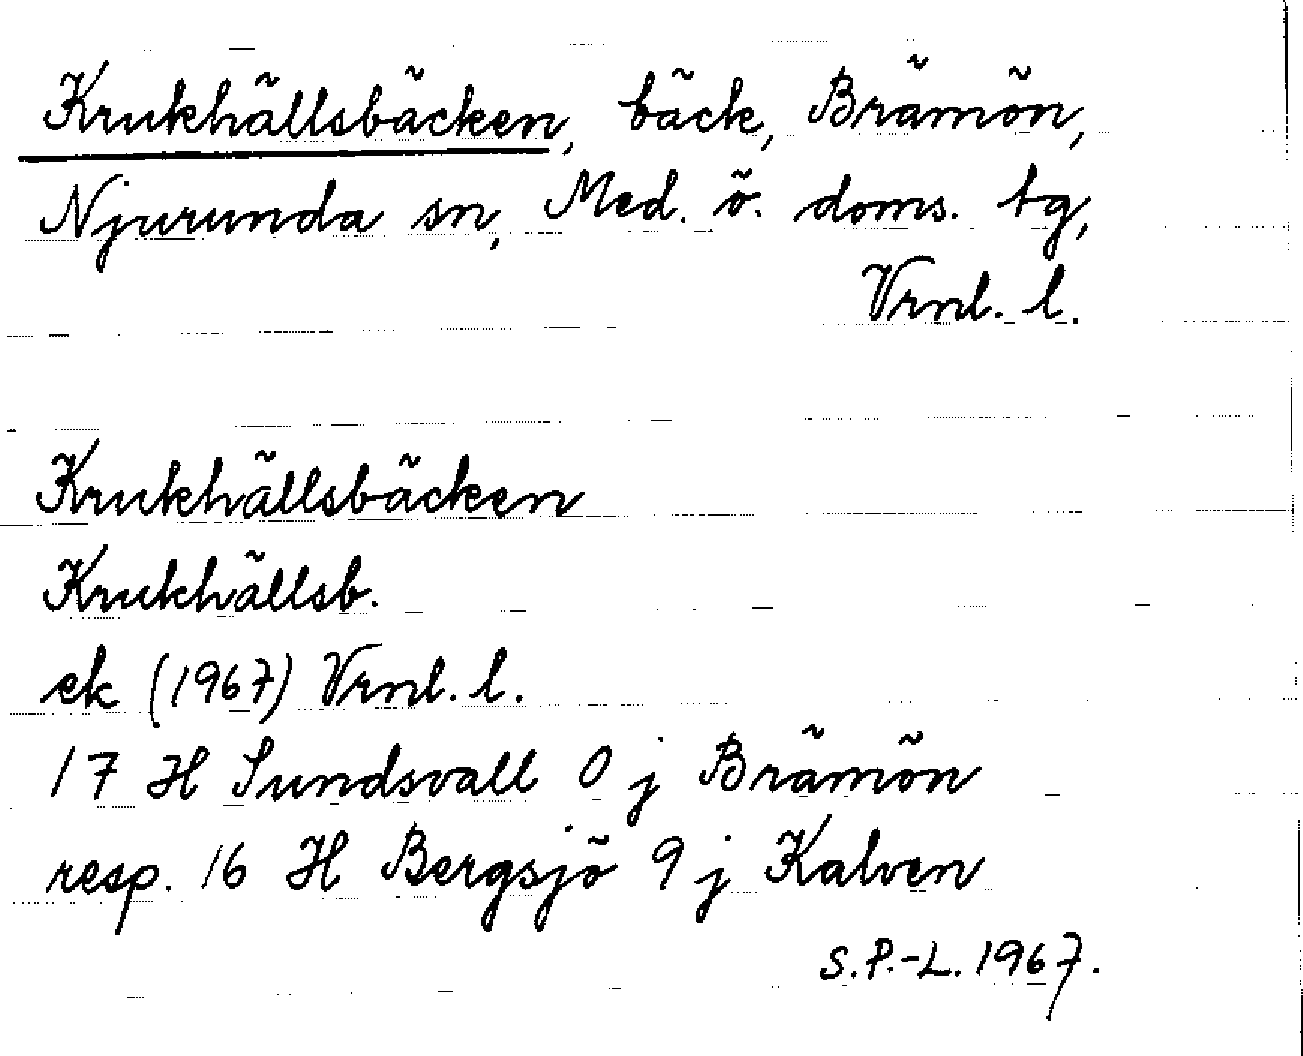 Krukhällsbäcken, bäck, Brämön,
Njurunda sn, Med. ö. doms. tg,
Vrnl. l.
Krukhällsbäcken
Krukhällsb.
ek (1967) Vrnl. l.
17 H Sundsvall 0 j Brämön
resp. 16 H Bergsjö 9 j Kalven
S.P.-L. 1967.